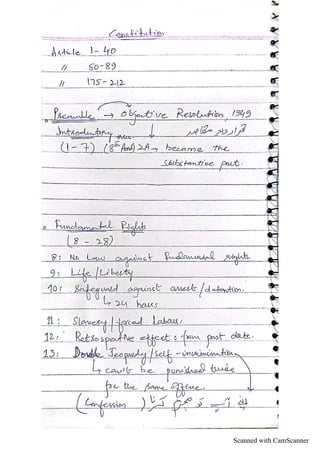 Constitution
Article 1-40
" 50-89
" 175-212
Preamble → Objective Resolution, 1949
Introductory قرارداد مقاصد
(1-7) (8th Amd) 2A → became the
substantive part.
Fundamental Rights
(8-28)
8: No Law against Fundamental rights
9: Life/Liberty
10: Safeguard against arrest/detention.
↳ 24 hours
11: Slavery/forced Labour:
12: Retrospective effect: from past date.
13: Double Jeopardy/Self-incrimination
↳ can't be punished twice
for the same offence.
(Confession)
Scanned with CamScanner